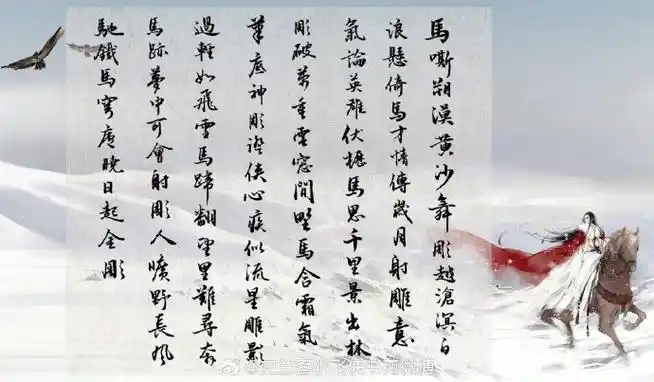 馬嘶朔漠黃沙舞彫越滄溟白
浪懸倚馬才情傳歲月射雕意
氣論英雄伏櫪馬思千里景出林
彫破萬重雲窓間野馬含霜氣
筆底神彫證俠心疾似流星雕影
過輕如飛雪馬蹄翻望里難尋奔
馬跡夢中可會射彫人曠野長風
馳鐵馬穹廬曉日起金彫